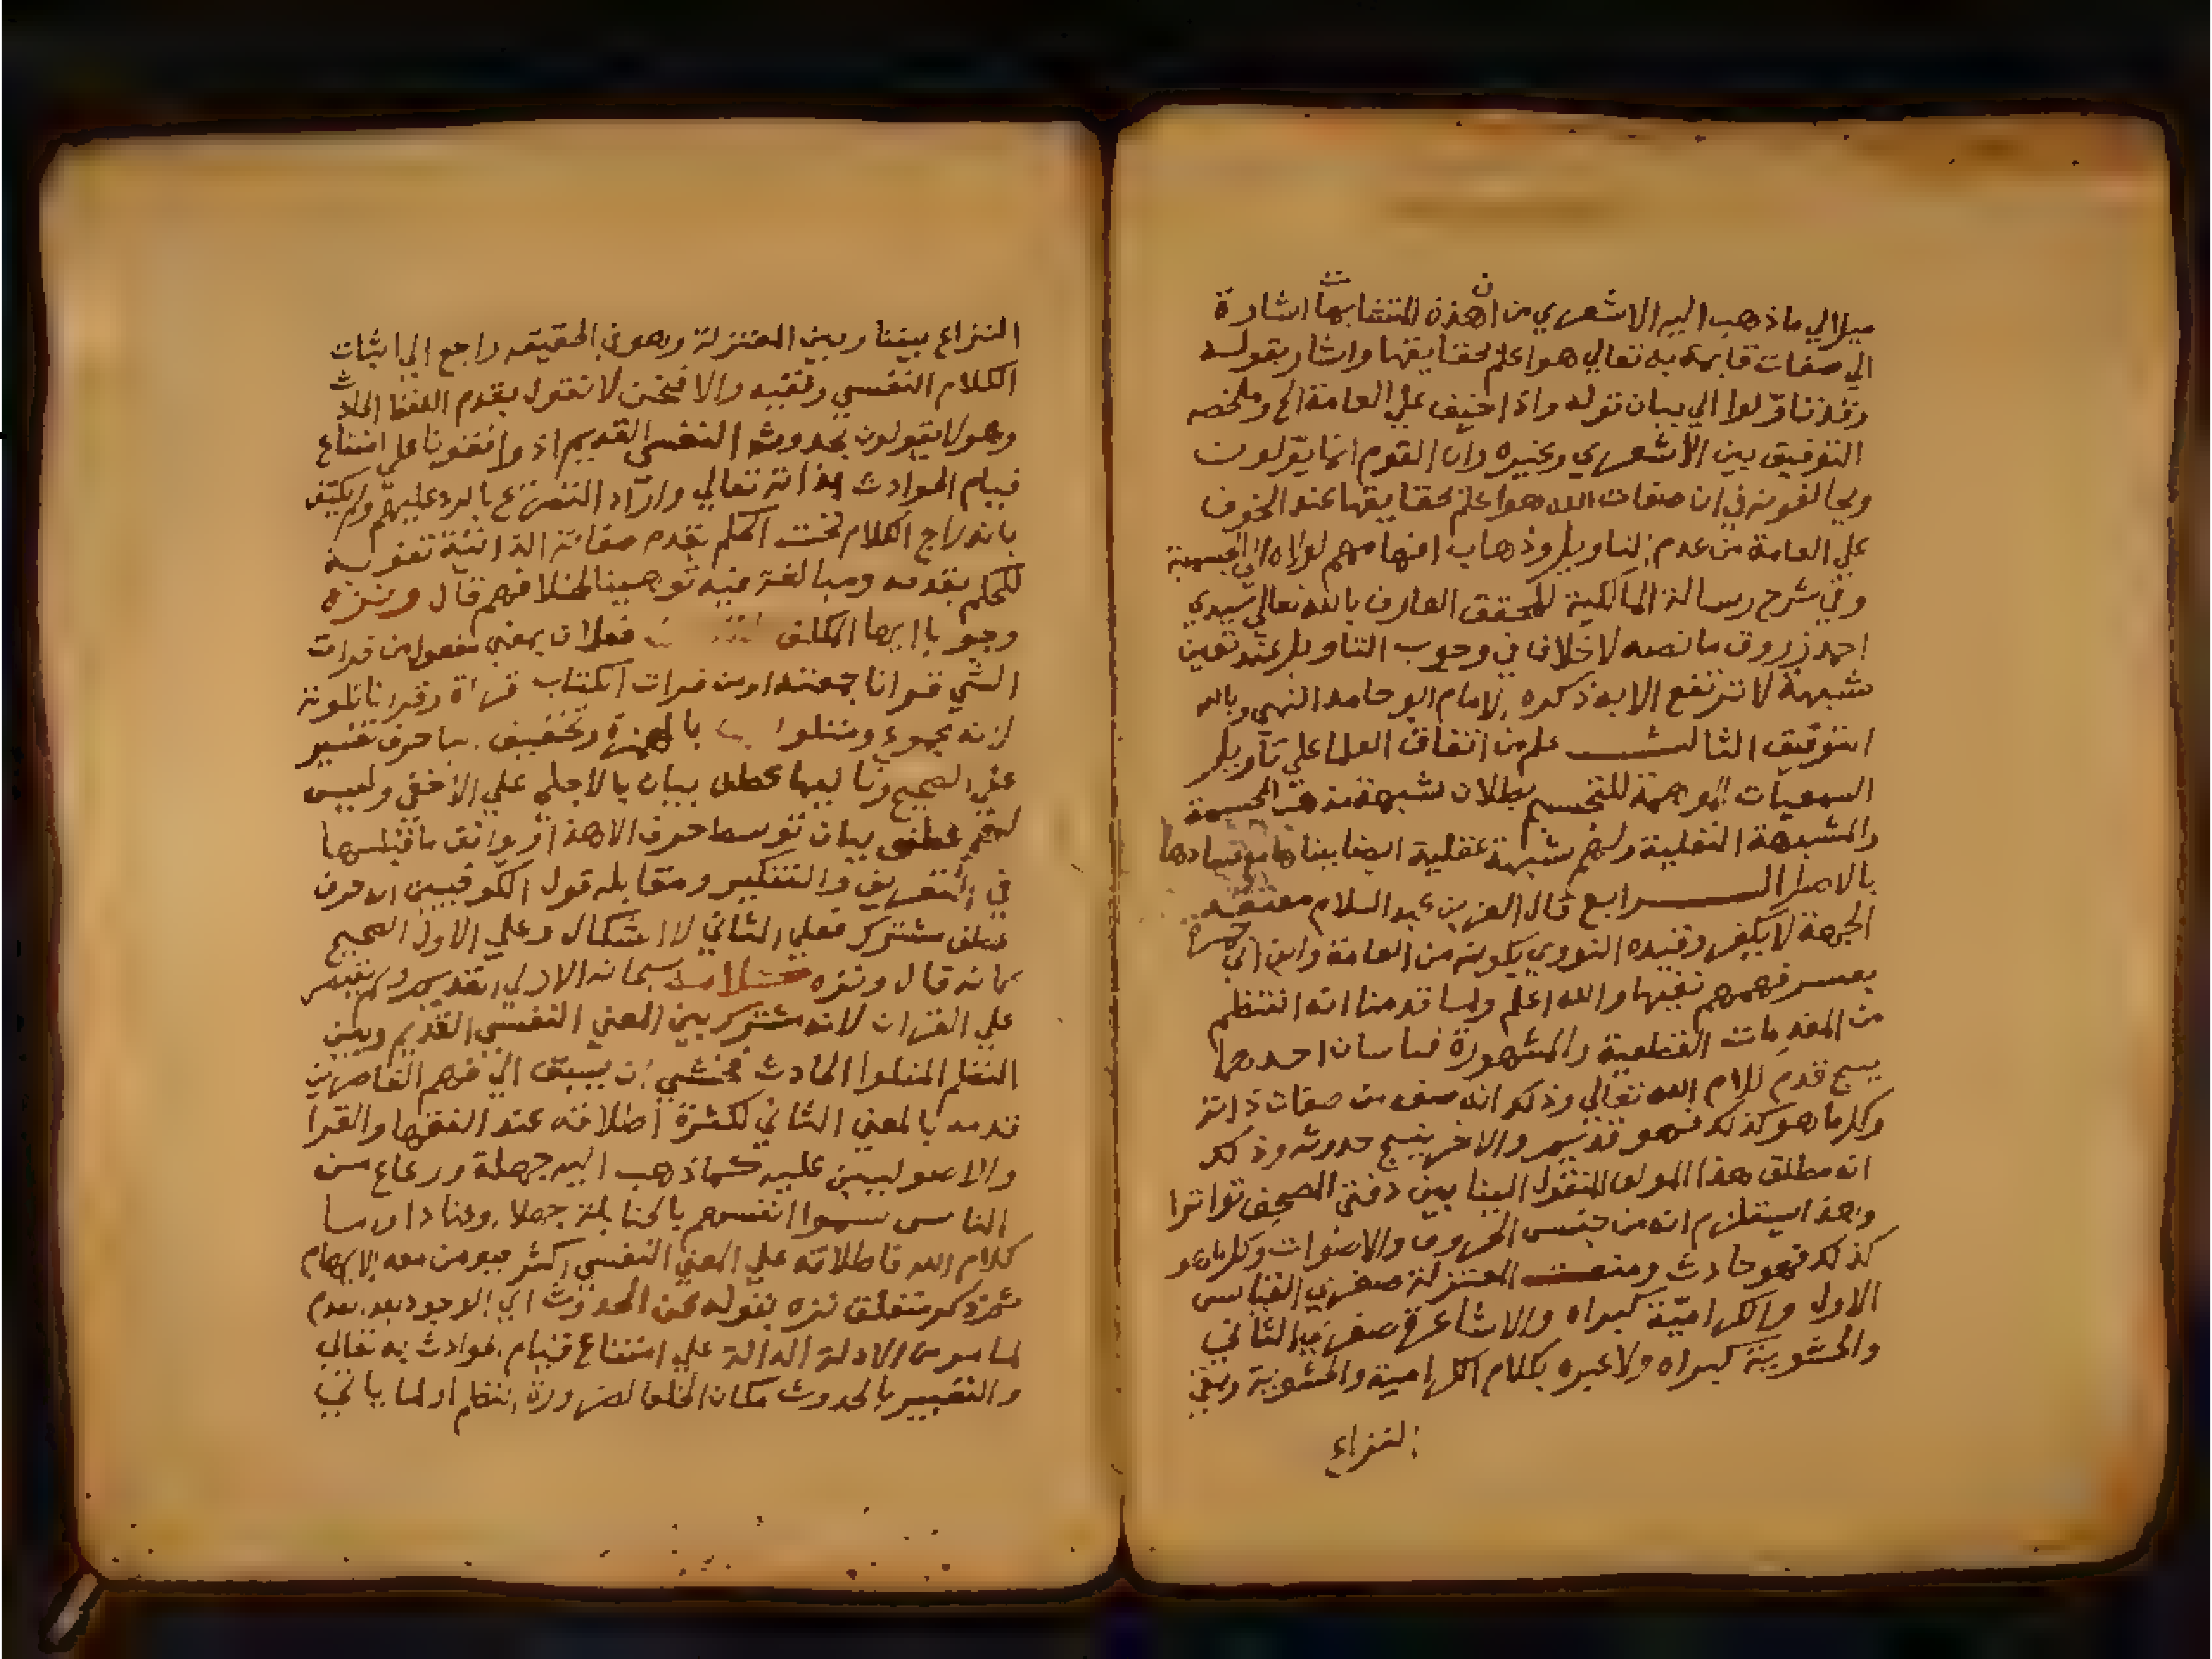 ميلا الي ما ذهب اليه الاشعري من ان هذه المتشابهات اشارة
الي صفات قايمة به تعالي هو اعلم بحقايقها واشار بقوله
وقد تاولوا الي بيان قوله واذا خيف علي العامة الخ وملخصه
التوفيق بين الاشعري وغيره وان القوم انما يؤلون
ويخالفونه في ان صفات الله هو اعلم بحقايقها عند الخوف
علي العامة من عدم التاويل وذهاب افهامهم لولاه الي الجسمية
وفي شرح رسالة المالكية للمحقق العارف بالله تعالي سيدي
احمد زروق ما نصه لا خلاف في وجوب التاويل عند تعين
شبهة لا ترتفع الا به ذكره الامام ابو حامد انتهي وبالله
التوفيق الثالث علم من اتفاق العلما علي تاويل
السمعيات الموهمة للتجسيم بطلان شبهة المجسمة
والمشبهة النقلية ولهم شبهة عقلية ايضا بينا فسادها
بالاصل الرابع قال العز بن عبد السلام معتقد
الجهة لا يكفر وقيده النووي بكونه من العامة وابن ابي جمرة
بعسر فهمهم نفيها والله اعلم ولما قدمنا انه انتظم
من المقدمات القطعية والمشهورة قياسان احدهما
ينتج قدم كلام الله تعالي وذلك انه صفة من صفات ذاته
وكل ما هو كذلك فهو قديم والاخر ينتج حدوثه وذلك
انه مطلق هذا المولف المنقول الينا بين دفتي المصحف تواترا
وهذا يستلزم انه من جنس الحروف والاصوات وكل ما هو
كذلك فهو حادث ومنعت المعتزلة صغري القياس
الاول والكرامية كبراه والاشاعرة صغري الثاني
والحشوية كبراه ولا عبره بكلام الكرامية والحشوية وبقي
النزاع
النزاع بيننا وبين المعتزلة وهو في الحقيقه راجع الي اثبات
الكلام النفسي ونفيه والا فنحن لا نقول بقدم اللفظ الحادث
وهو لا يقولون بحدوث النفسي القديم اذ وافقونا علي امتناع
قيام الحوادث بذاته تعالي واراد التصريح بالرد عليهم ولم يكتف
باندراج الكلام تحت الحكم بقدم صفاته الذاتية تقوية
للحكم بقدمه ومبالغة فيه توهينا لخلافهم قال ونزه
وجوبا ايها المكلف فعلان بمعني مفعول من قرات
الشي قرانا جمعته او من قرات الكتاب قراة وقرانا تلوته
لانه مجموع ومتلوا بالهمزة وتخفيف حرف تفسير
علي الصحيح وتاليها عطف بيان بالاجلي علي الاخفي وليس
لهم عطف بيان توسط حرف الا هذا فيوافق ما قبلها
في التعريف والتنكير ومقابله قول الكوفيين انه حرف
عطف مشترك فعلي الثاني لا اشكال وعلي الاول الصحيح
كانه قال ونزه كلامه سبحانه الازلي القديم ولم يقتصر
علي القران لانه مشترك بين المعني النفسي القديم وبين
النظم المتلوا الحادث فخشي ان يسبق الي فهم القاصرين
قدمه بالمعني الثاني لكثرة اطلاقه عند الفقها والقرا
والاصوليين عليه كما ذهب اليه جهلة ورعاع من
الناس سموا انفسهم بالحنابلة جهلا وعنادا
كلام الله فاطلاقه علي المعني النفسي اكثر فيومن معه الايهام
ثم ذكر متعلق نزه بقوله عن الحدوث اي الوجود بعد العدم
لما مر من الادلة الدالة علي امتناع قيام الحوادث به تعالي
والتعبير بالحدوث مكان الخلق لضرورة النظم او لما ياتي